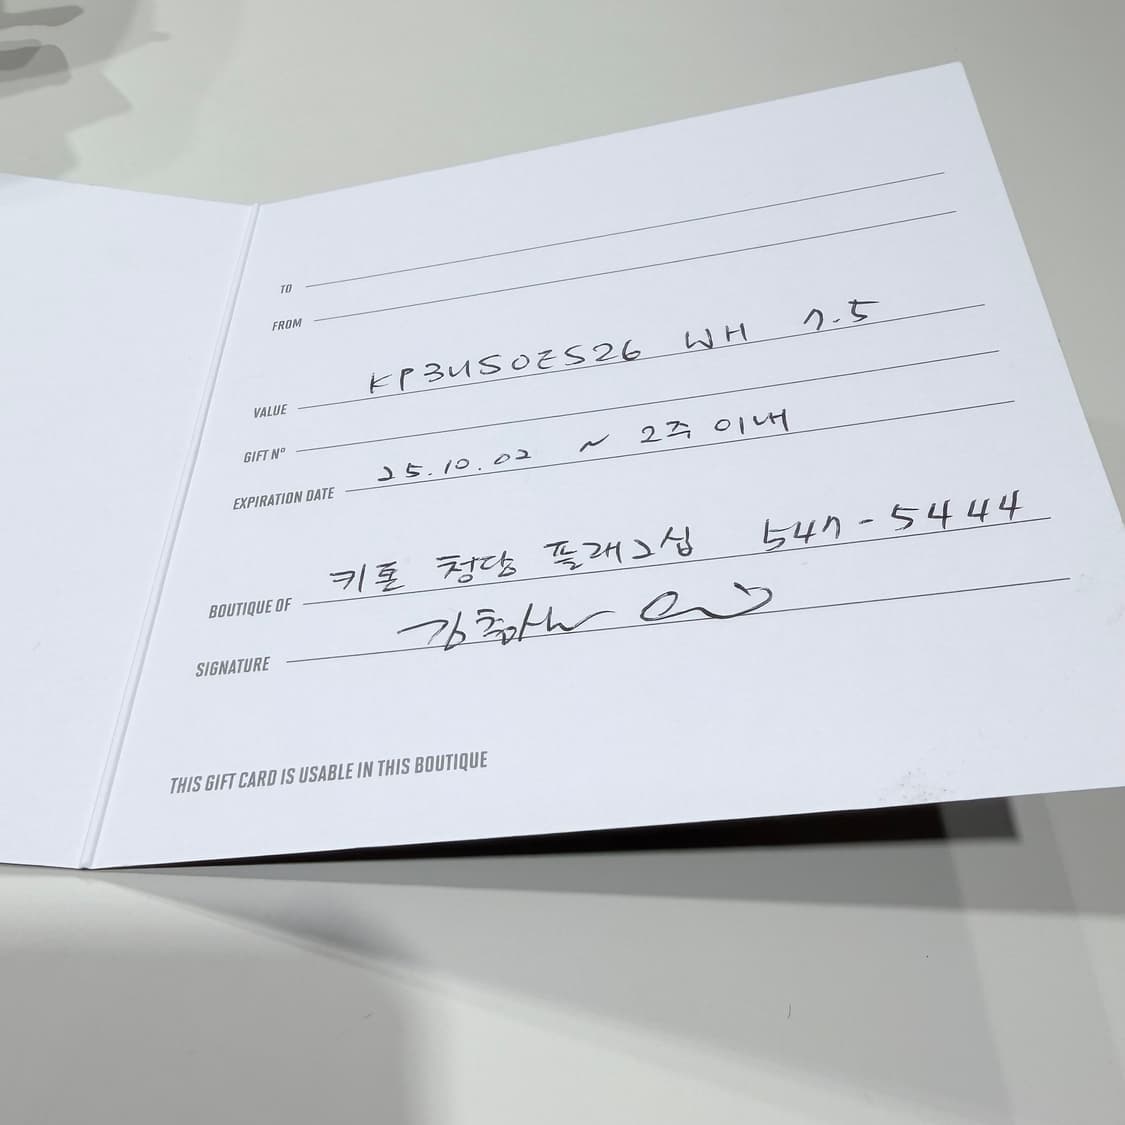 TO
FROM
VALUE KP3USOES26 WH 7.5
GIFT Nº
EXPIRATION DATE 25.10.02 ~ 2주 이내
BOUTIQUE OF 키톤 청담 플래그십 547-5444
SIGNATURE
THIS GIFT CARD IS USABLE IN THIS BOUTIQUE